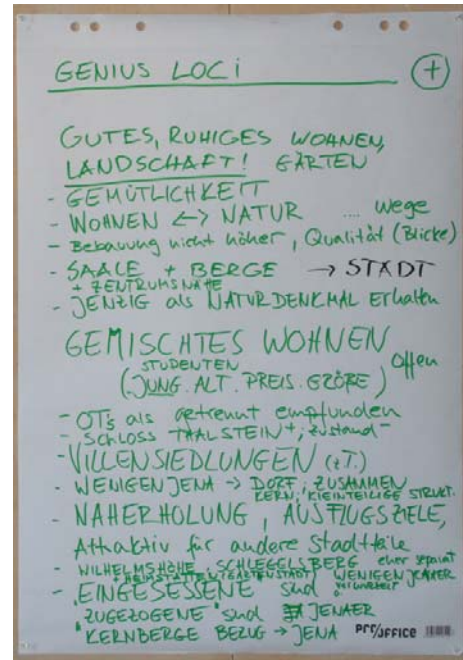 GENIUS LOCI +
GUTES, RUHIGES WOHNEN,
LANDSCHAFT! GÄRTEN
- GEMÜTLICHKEIT
- WOHNEN <-> NATUR .... wege
- Bebauung nicht höher, Qualität (Blicke)
- SAALE + BERGE → STADT
+ ZENTRUMSNÄHE
- JENZIG als NATURDENKMAL erhalten
GEMISCHTES WOHNEN
STUDENTEN offen
(JUNG. ALT. PREIS. GRÖßE)
- OTs als getrennt empfunden
- SCHLOSS THALSTEIN +; Zustand -
- VILLENSIEDLUNGEN (z.T.)
- WENIGENJENA → DORF; ZUSAMMEN
KERN; KLEINTEILIGE STRUKT.
- NAHERHOLUNG, AUSFLUGSZIELE,
Attraktiv für andere Stadtteile
- WILHELMSHÖHE, SCHLEGELSBERG eher separat
+ HEIMSTÄTTEN (GARTENSTADT) WENIGENJENAER
- "EINGESESSENE" sind verwurzelt
"ZUGEZOGENE" sind JENAER
"KERNBERGE BEZUG → JENA
pro/office